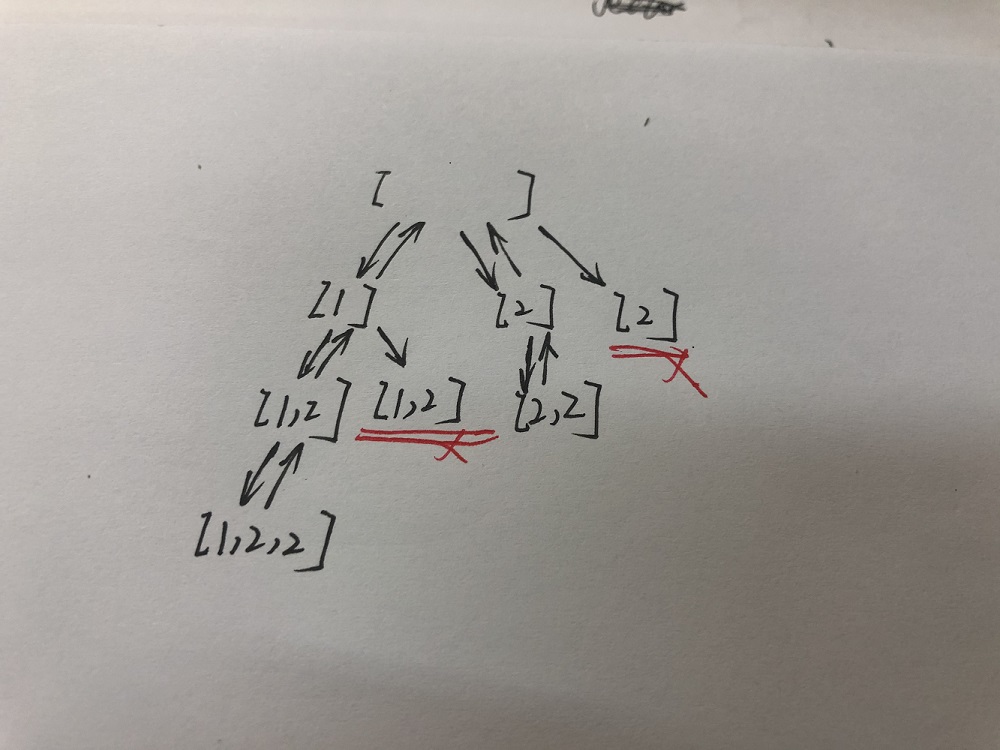 [ ]
[1] [2] [2]
[1,2] [1,2] [2,2]
[1,2,2]